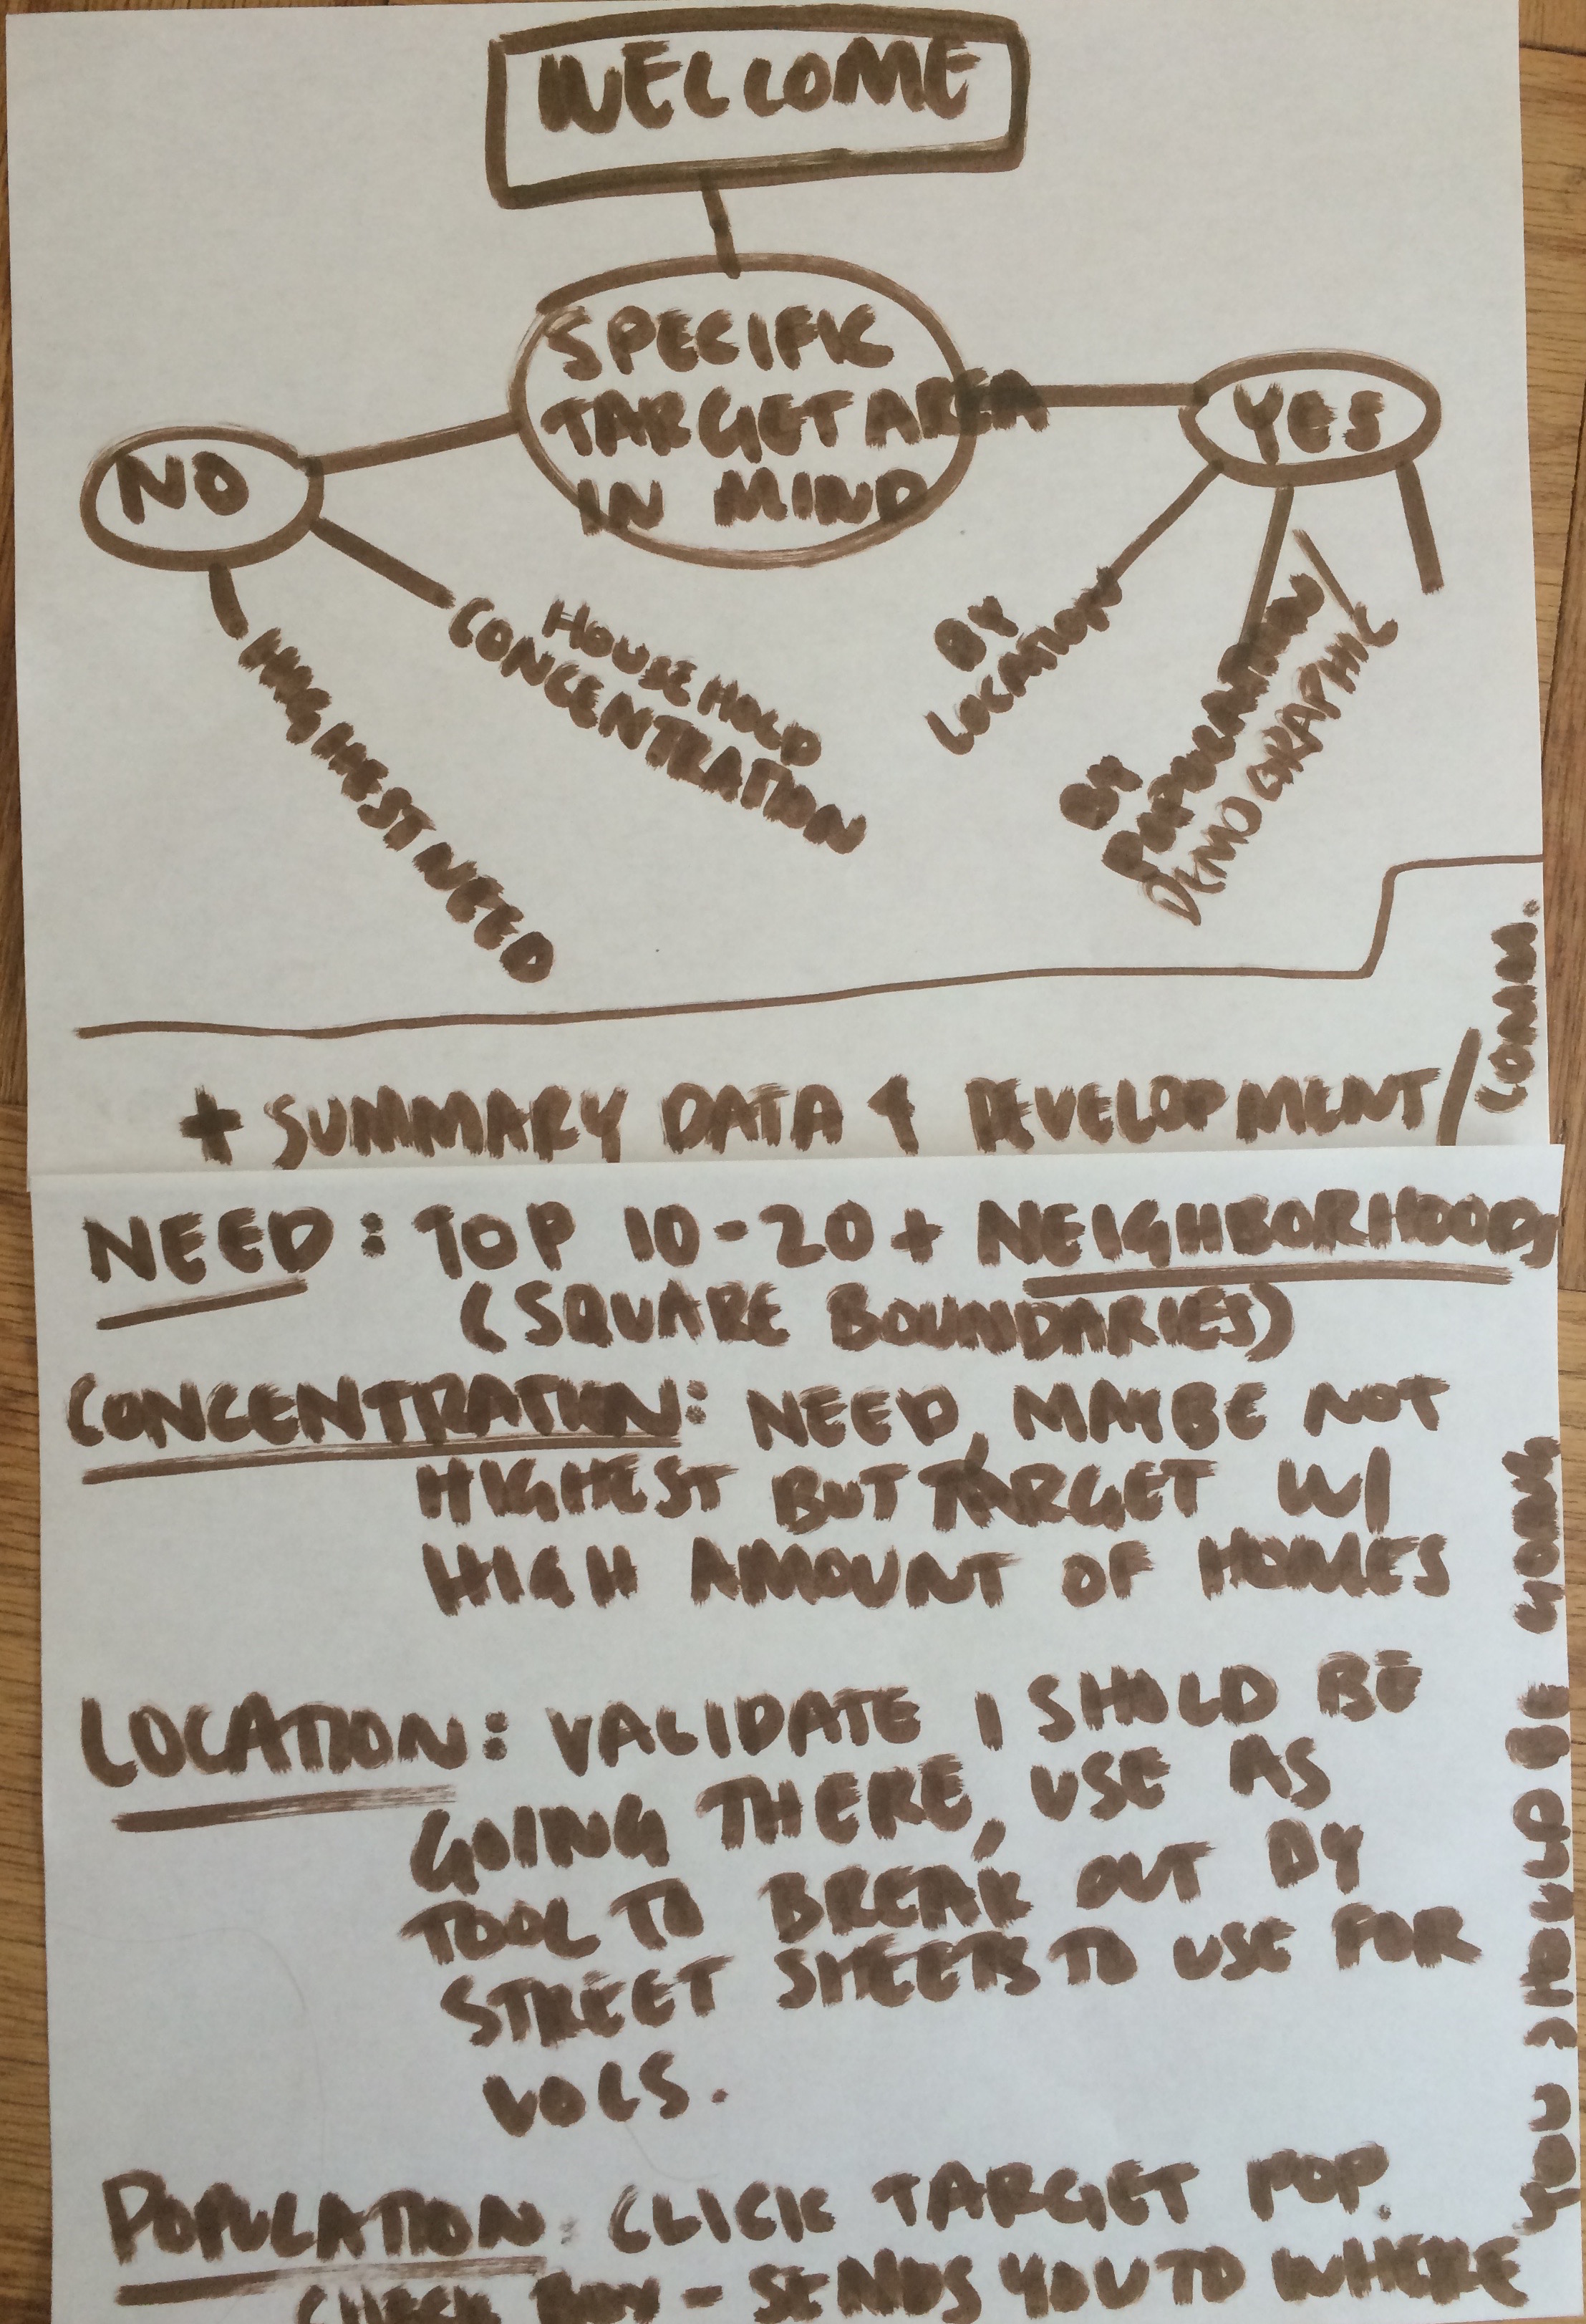 WELCOME
SPECIFIC
TARGET AREA
IN MIND
NO
YES
HIGHEST NEED
HOUSEHOLD
CONCENTRATION
BY
LOCATION
BY
POPULATION/
DEMOGRAPHIC
+ SUMMARY DATA & DEVELOPMENT/COMM.
NEED: TOP 10-20+ NEIGHBORHOODS
(SQUARE BOUNDARIES)
CONCENTRATION: NEED, MAYBE NOT
HIGHEST BUT TARGET W/
HIGH AMOUNT OF HOMES
LOCATION: VALIDATE I SHOLD BE
GOING THERE, USE AS
TOOL TO BREAK OUT BY
STREET SHEETS TO USE FOR
VOLS.
POPULATION: CLICK TARGET POP.
CHECK BOX - SENDS YOU TO WHERE
YOU SHOULD BE GOING